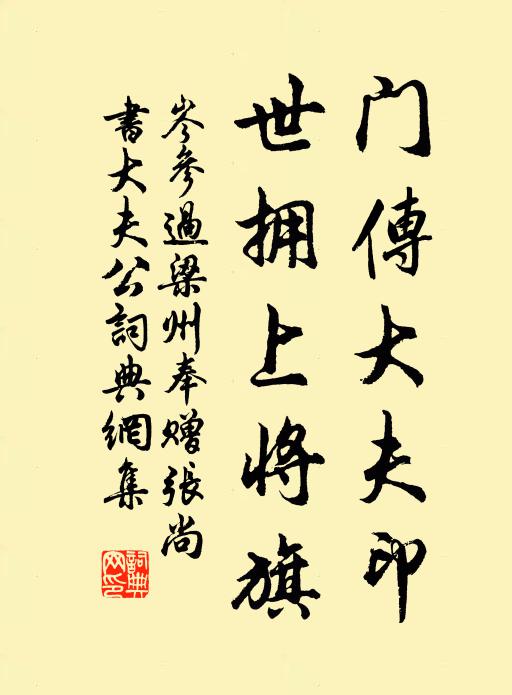 门傳大夫印
世拥上将旗
岑參過梁州奉赠張尚
書大夫公詞典網集
詞典
网印